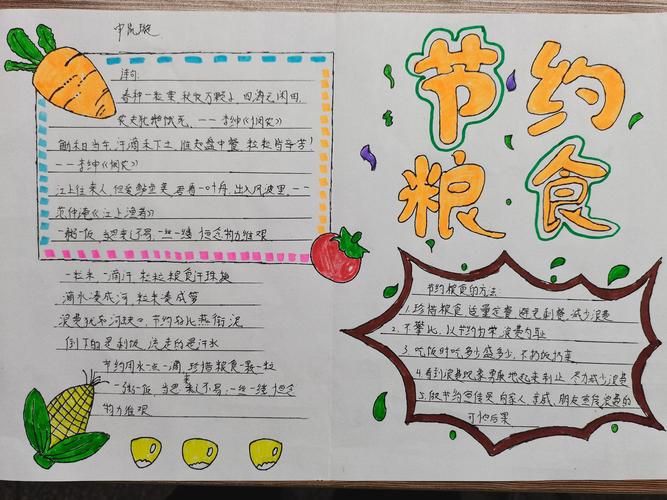 诗句:
春种一粒粟,秋收万颗子,四海无闲田,
农夫犹饿死。——李绅《悯农》
锄禾日当午,汗滴禾下土,谁知盘中餐,粒粒皆辛苦!
——李绅《悯农》
江上往来人,但爱鲈鱼美,君看一叶舟,出入风波里,——
范仲淹《江上渔者》
一粥一饭,当思来之不易,一丝一缕,恒念物力维艰
一粒米 一滴汗,粒粒粮食汗珠换
滴水凑成河,粒米凑成箩
浪费犹如河缺口,节约好比燕衔泥
倒下的是剩饭,流走的是汗水
节约用水一点一滴,珍惜粮食一颗一粒
一粥一饭,当思来之不易;一丝一缕,恒念
物力维艰
节约
粮食
节约粮食的方法:
1.珍惜粮食,适量定餐,避免剩餐,减少浪费
2.不攀比,以节约为荣,浪费为耻
3.吃饭时吃多少盛多少,不扔饭菜
4.看到浪费现象勇敢地起来制止,尽力减少浪费
5.做节约宣传员,向家人,亲戚,朋友宣传浪费的
可怕后果